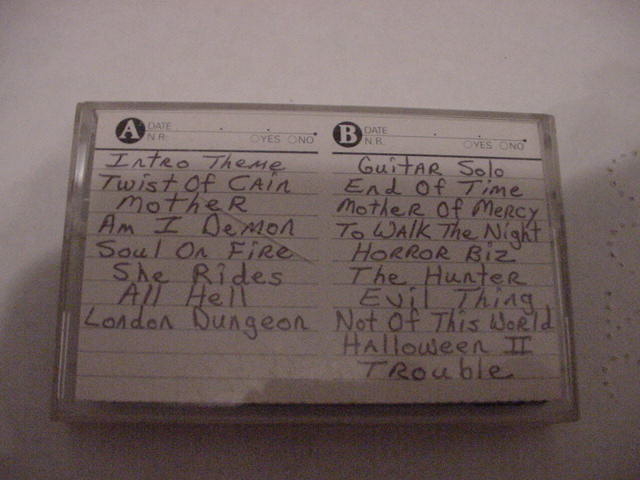 A DATE
N.R. YES NO
Intro Theme
Twist Of Cain
Mother
Am I Demon
Soul On Fire
She Rides
All Hell
London Dungeon
B DATE
N.R. YES NO
Guitar Solo
End Of Time
Mother Of Mercy
To Walk The Night
Horror Biz
The Hunter
Evil Thing
Not Of This World
Halloween II
Trouble